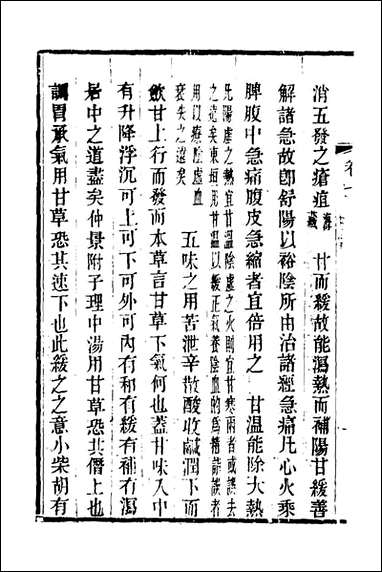 消五發之瘡疽 海藏 甘而緩故能瀉熱而補陽甘緩善
解諸急故卽舒陽以裕陰所由治諸經急痛凡心火乘
脾腹中急痛腹皮急縮者宜倍用之 甘溫能除大熱
凡陽虛之熱宜甘溫陰虛之火則宜甘寒兩者或誤去
之遠矣東垣用甘溫以緩正氣養陰血的爲精詳後者
用以療陰虛血
衰失之遠矣
五味之用苦泄辛散酸收鹹潤下而
斂甘上行而發而本草言甘草下氣何也蓋甘味入中
有升降浮沉可上可下可外可內有和有緩有補有瀉
居中之道盡矣仲景附子理中湯用甘草恐其僭上也
調胃承氣用甘草恐其速下也此緩之之意小柴胡有